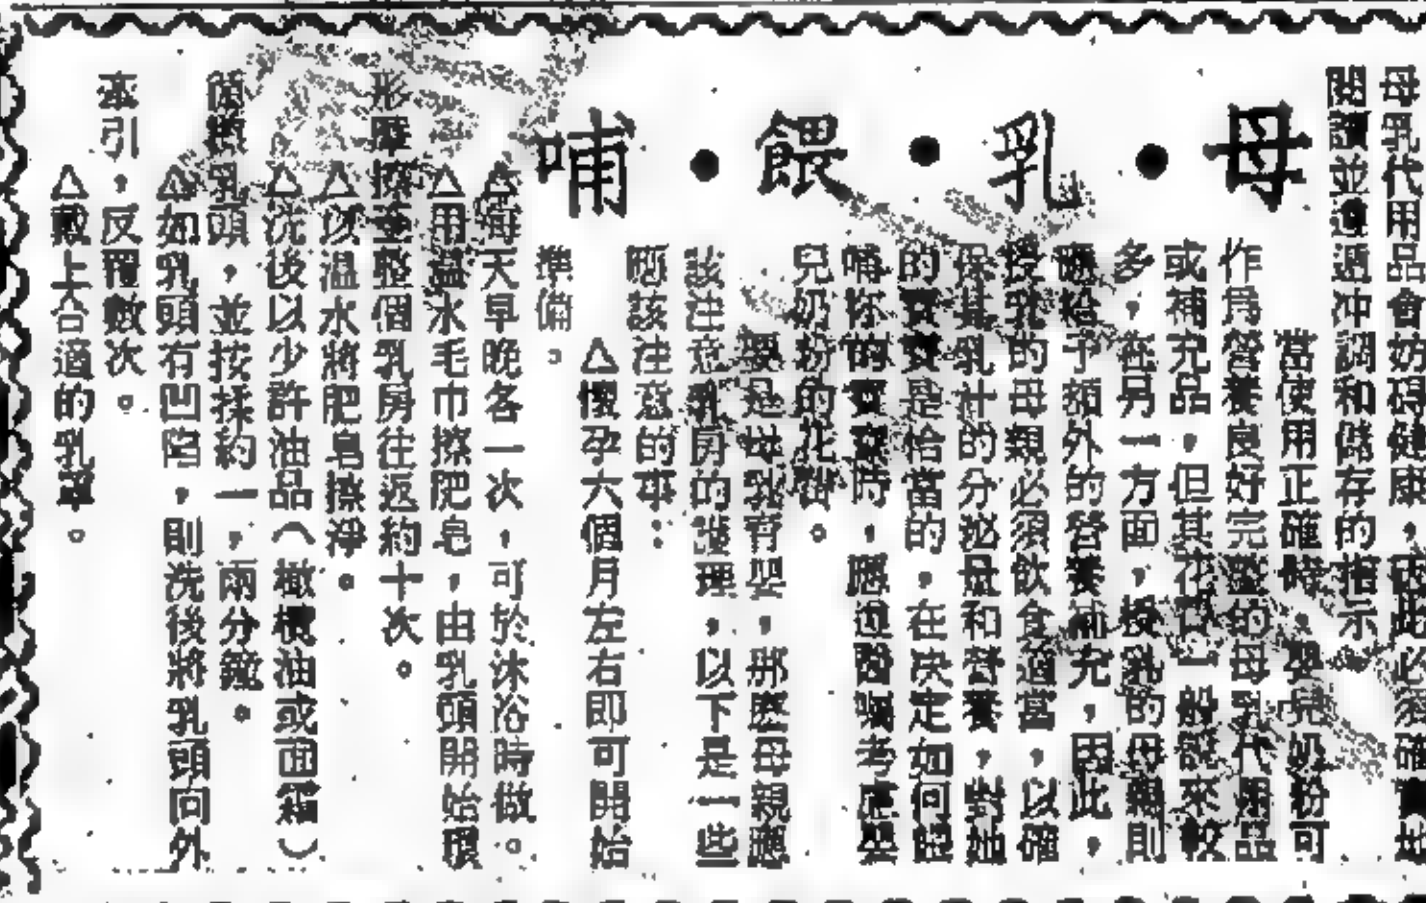 母乳代用品會妨碍健康，因此必須確實
閱讀並遵週冲調和儲存的指示
母・乳・餵・哺
當使用正確時，嬰兒奶粉可
作為營養良好完整的母乳代用品
或補充品，但其花費一般說來較
多，在另一方面，授乳的母親則
應給予額外的營養補充，因此，
授乳的母親必須飲食適當，以確
保其乳汁的分泌量和營養，對她
的寶寶是恰當的，在決定如何餵
哺你的寶寶時，應遵醫囑考慮嬰
兒奶粉的花費。
要是母乳育嬰，那麽母親應
該注意乳房的護理，以下是一些
應該注意的事：
△懷孕六個月左右即可開始
準備。
△每天早晚各一次，可於沐浴時做。
△用溫水毛巾擦肥皂，由乳頭開始環
形摩擦至整個乳房往返約十次。
△以温水將肥皂擦淨。
△洗後以少許油品（橄欖油或面霜）
簡擦乳頭，並按揉約一，兩分鐘。
△如乳頭有凹陷，則洗後將乳頭向外
牽引，反覆數次。
△戴上合適的乳罩。